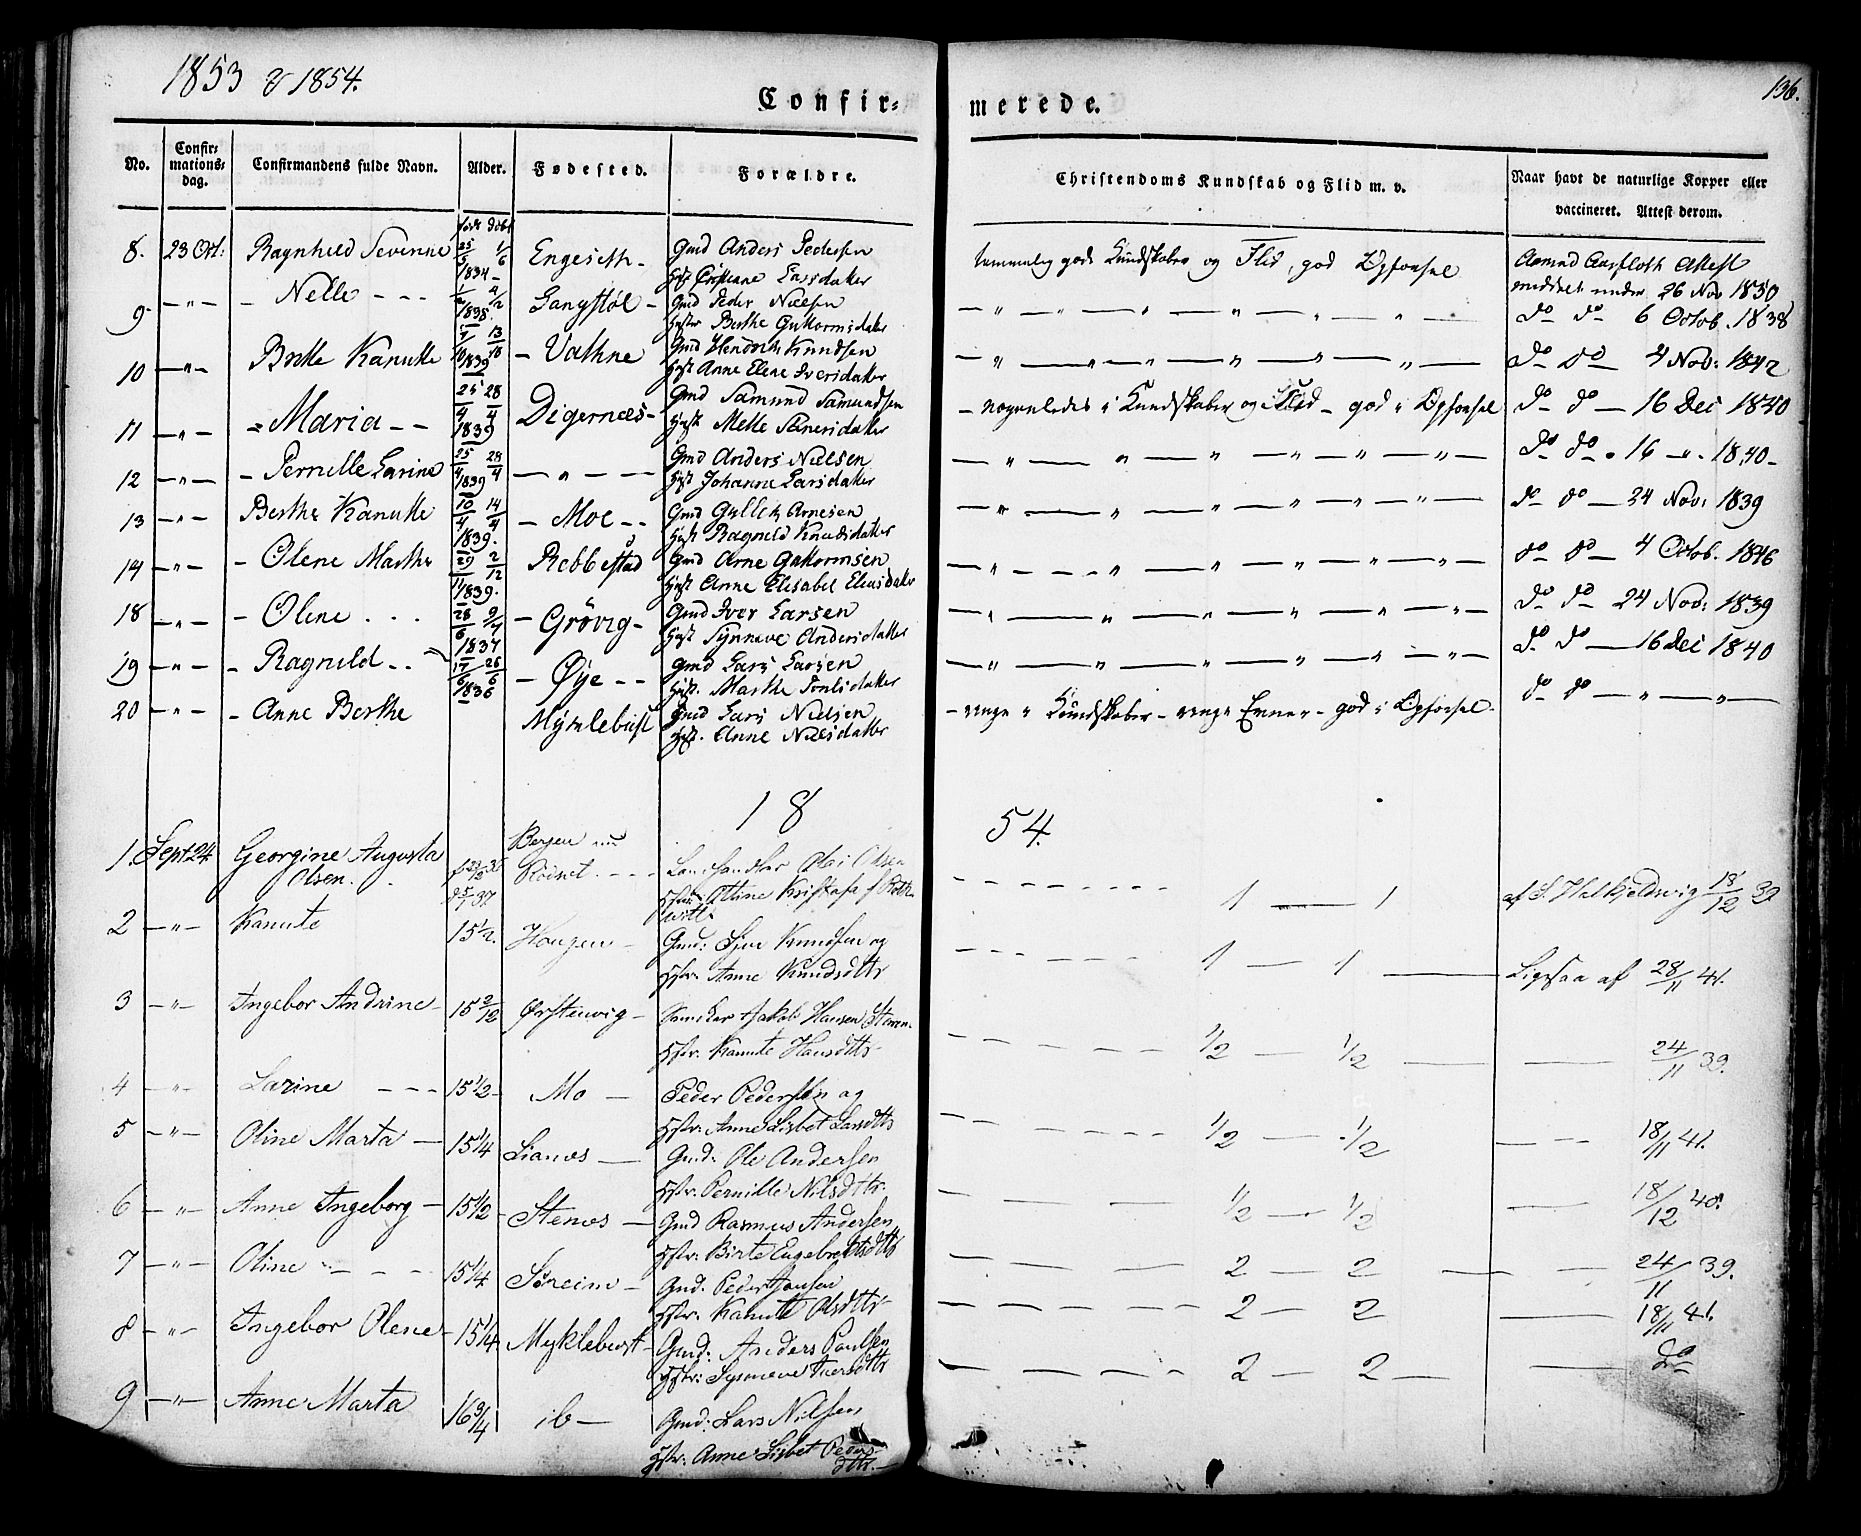 1853 & 1854.
136.
Confir-
merede.
No.
Confir-
mations-
dag.
Confirmandens fulde Navn.
Alder.
Fødested.
Forældre.
Christendoms Kundskab og Flid m. v.
Naar havt de naturlige Kopper eller
vaccineret. Attest derom.
født døbt
8. 23 Oct: Ragnhild Severine 25/5 1/6 1834 Engeseth - Gmd Anders Pedersen
temmelig gode Kundskaber og Flid, god Opførsel
Aamund Aarfloth Attest
meddelt under 26 Nov 1850
9 - " - - Nelle - - - 1838 Langstøl - Gmd Peder Nielsen
Hustr Berthe Guttormsdatter
do do 6 Octob. 1838
10 - " - Birthe Kanutte 7/10 13/10 1839 - Vathne Gmd Hendrik Knudsen
Hust Anne Elene Iversdatter
do do - 4 Nov: 1842
11 - " - - Maria - - 25/4 28/4 1839 Digernæs - Gmd Samund Samundsen
Hust Mette
- nogenledes i Kundskaber og Flid - god i Opførsel
do do - 16 Dec 1840
12 - " - - Pernille Larine 25/4 28/4 1839 - " - - Gmd Anders Nielsen
Hust Johanne Larsdatter
do do - 16 - " - 1840 -
13 - " - Berthe Kanutte 10/4 14/4 1839. - Moe - - Gmd Arnesen
Hust Ragnild Knudsdatter
do do - 24 Nov: 1839
14 - " - - Olene Marthe 29/11 2/12 1839. Rebbestad Gmd Arne Guttormsen
Hust Anne Elisabet Eliasdatter
do do - 4 Octob. 1846
18 - " - - Olene . . . 28/6 9/7 1837 - Grøvig - Gmd Iver Larsen
Hust Synneve Andersdatter
do do 24 Nov: 1839
19 - " - - Ragnild - - 17/6 26/6 1836 - Øye - - Gmd Lars Larsen
Hust. Marthe
do do - 16 Dec 1840
20 - " - - Anne Berthe Myhlebust Gmd Lars Nielsen
Hust. Anne Nilsdatter
- ringe i Kundskaber - ringe Evner - god i Opførsel -
do do - " - " -
18
54.
1. Sept 24 Georgine Augusta
Olsen. Bergen nu
- - - - Landhandler Olai Olsen
1 - 1
af S. Halkjelsvig 18/12 39
2 - " - Kanute 15 1/2. Haugen - Gmd: Sjur Knudsen og
Hstr: Anne Knudsdttr
1 - 1 - Ligesaa af 28/11 41.
3 - " - Ingebor Andrine - 15 2/12 Ørstenvig - Jakob Hansen
Hstr. Kanute Hansdttr
1/2 - 1/2 - - 24/11 39.
4 - " - Larine - - - 15 1/2 - Mo - Peder Pedersen og
Hstr: Anne Lisbet Larsdttr
1/2 - 1/2 - - 18/11 41.
5 - " - Oline Marta - 15 1/4 - Gmd: Ole Andersen
Hstr. Pernille Nilsdttr.
1/2 - 1/2 - 18/12 40.
6 - " - Anne Ingeborg - 15 1/2 - Stenes - Gmd Rasmus Andersen
Hstr: Birte Engebretsdttr
2 - 2 - - 24/11 39.
7 - " - Oline - - - 15 1/4 Søreim - Gmd. Peder Hansen
Hstr. Kanute Olsdttr
2 - 2 - 18/11 41.
8 - " - Ingebor Olene - 15 1/4 Myklebust - Gmd: Anders Paulsen
Hstr: Synneve Iversdttr
2 - 2 - - do
9 - " - Anne Marta 16 3/4 ib - Gmd: Lars Nilsen,
Hstr: Anne Lisbet Peders
dttr. -